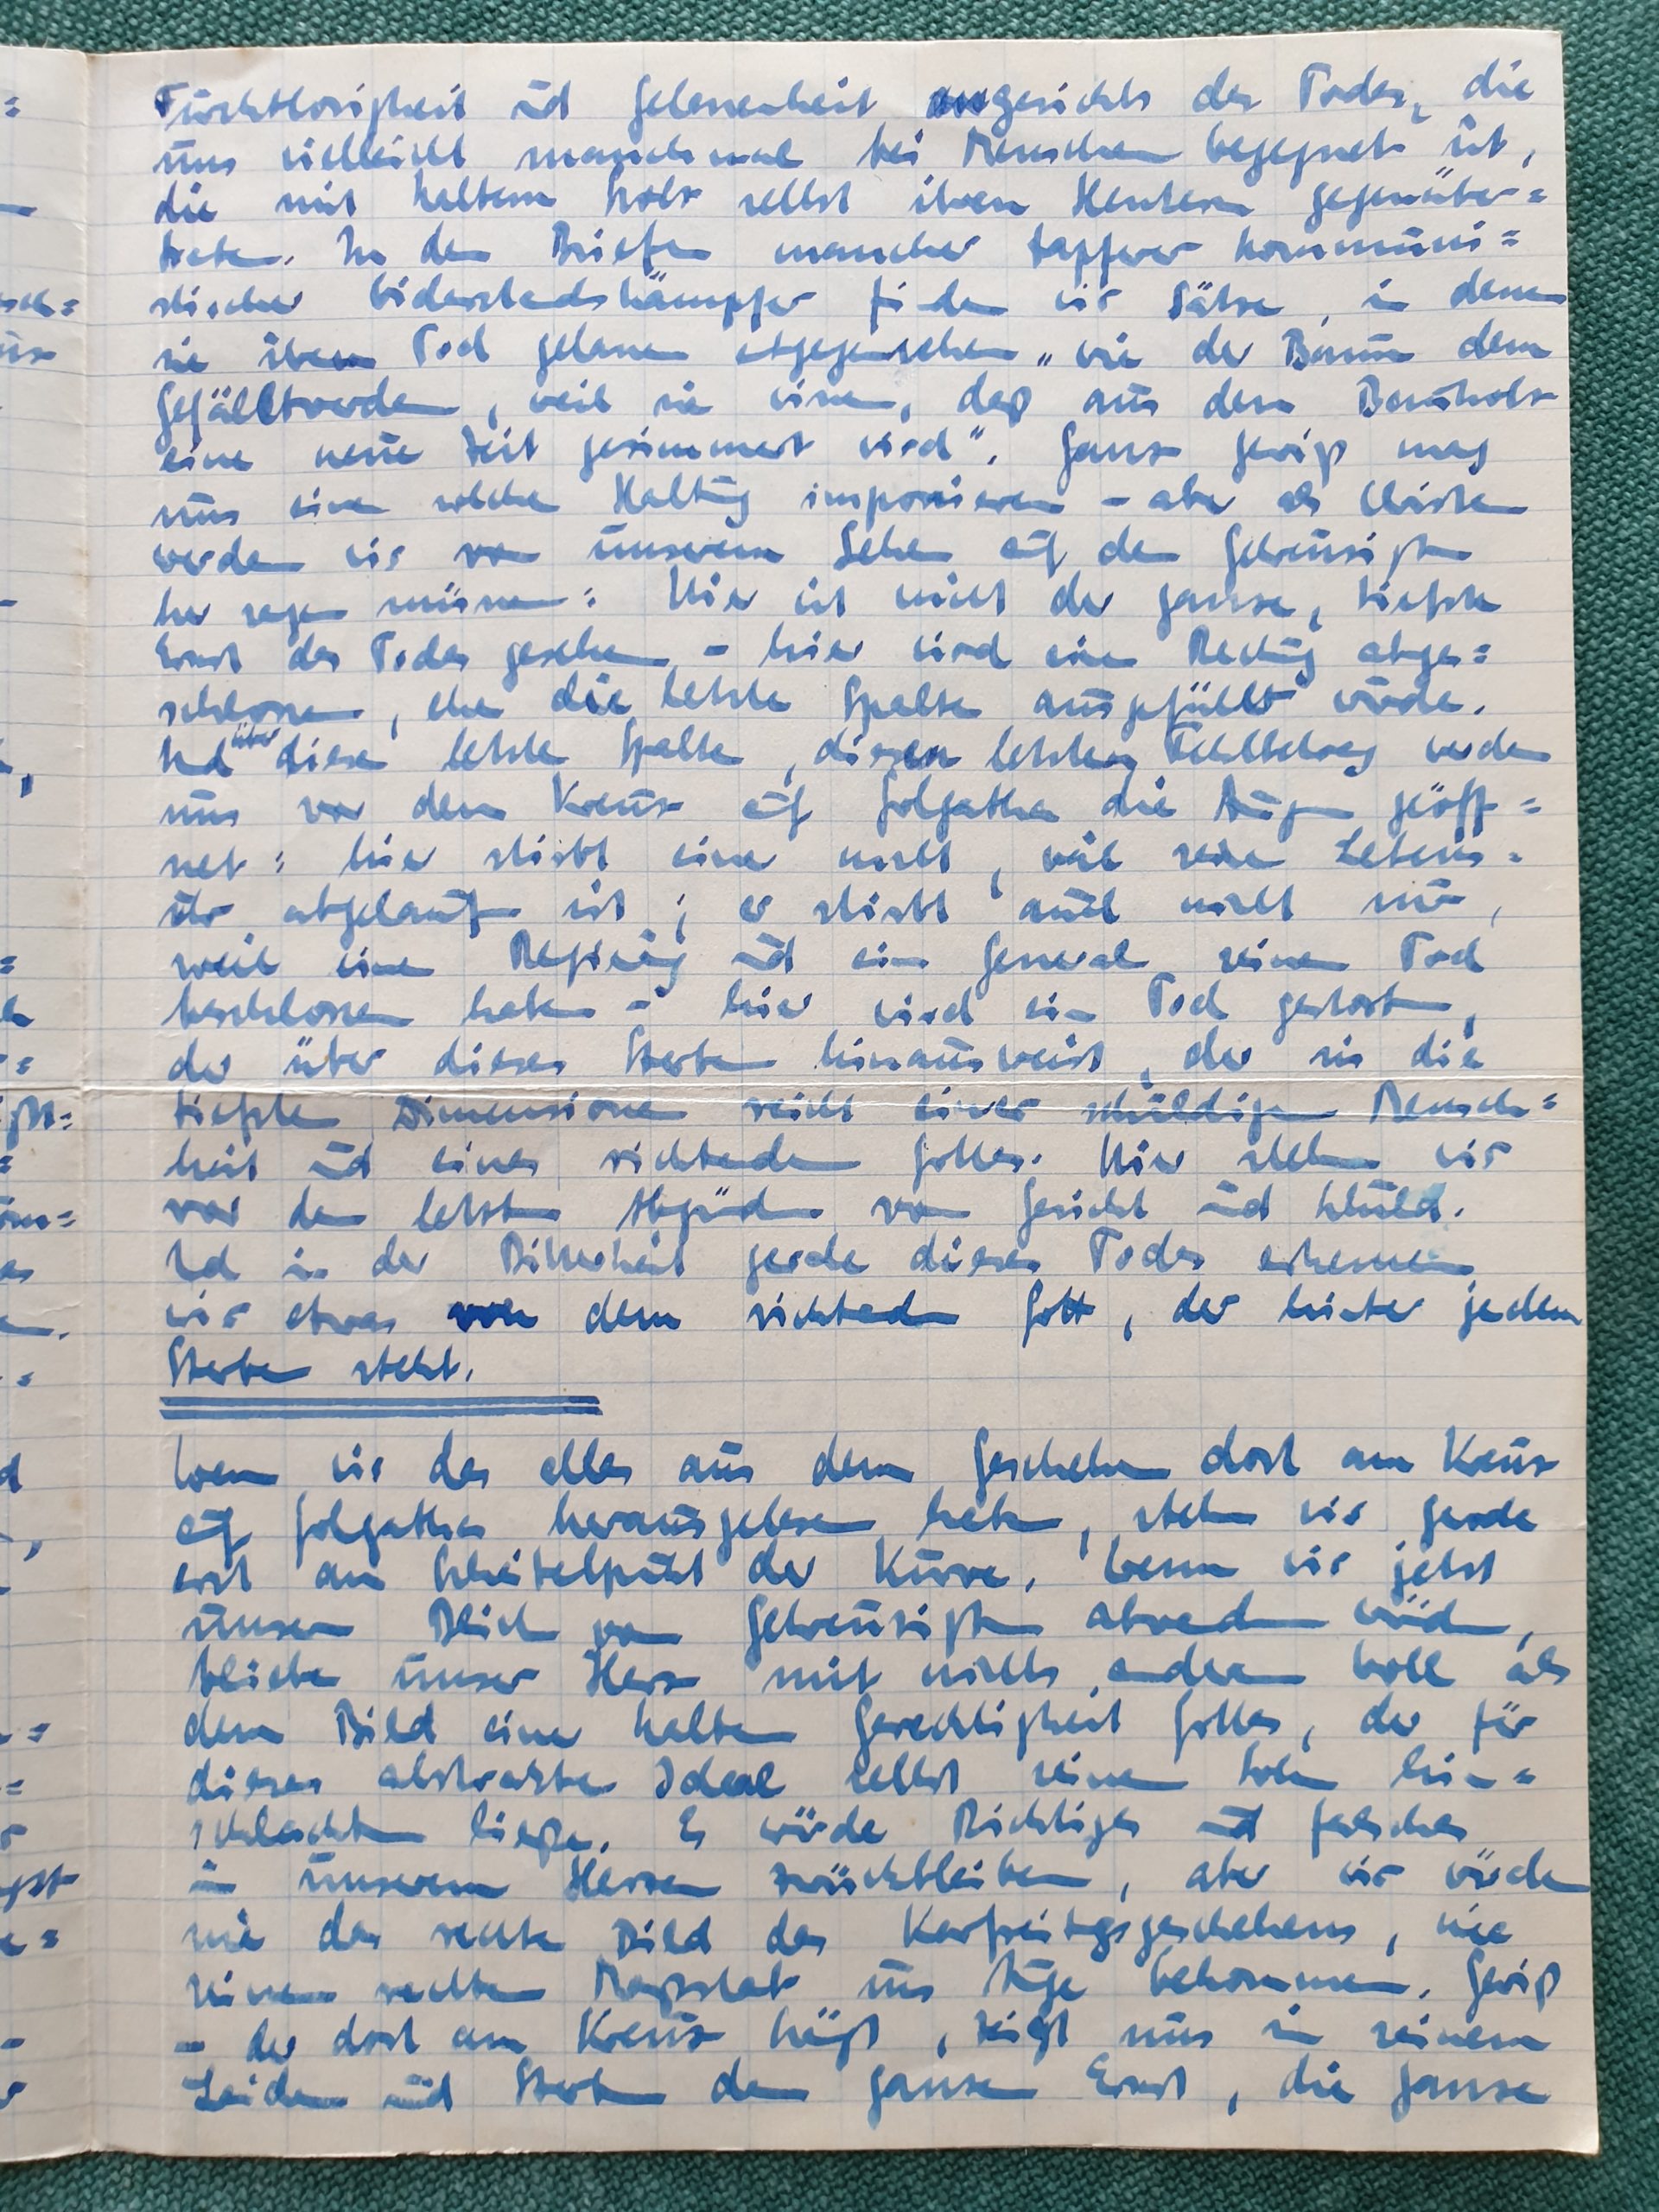 Furchtlosigkeit und Gelassenheit angesichts des Todes, die
uns vielleicht manchmal bei Menschen begegnet ist,
die mit kaltem Stolz selbst ihren Henkern gegenüber=
treten. In den Briefen mancher tapferer kommuni=
stischer Widerstandskämpfer finden wir Sätze, in denen
sie ihrem Tod gelassen entgegensehen „wie der Baum dem
Gefälltwerden, weil sie wissen, daß aus dem Baumholz
eine neue Zeit gezimmert wird". Ganz gewiß mag
uns eine solche Haltung imponieren – aber als Christen
werden wir von unserem Sehen auf den Gekreuzigten
her sagen müssen: Hier ist nicht der ganze, tiefste
Ernst des Todes gesehen – hier wird eine Rechnung abge=
schlossen, ehe die letzte Spalte ausgefüllt wurde.
Und über diese letzte Spalte, diesen letzten Fehlbetrag werden
uns vor dem Kreuz auf Golgatha die Augen geöff=
net: hier stirbt einer nicht, weil seine Lebens=
uhr abgelaufen ist; er stirbt auch nicht nur,
weil eine Regierung und ein General seinen Tod
beschlossen haben – hier wird ein Tod gestorben,
der über dieses Sterben hinausweist, der in die
tiefsten Dimensionen reicht einer schuldigen Mensch=
heit und eines richtenden Gottes. Hier stehen wir
vor den letzten Abgründen von Gericht und Schuld.
Und in der Bitterkeit gerade dieses Todes erkennen
wir etwas von dem richtenden Gott, der hinter jedem
Sterben steht.
Wenn wir das alles aus dem Geschehen dort am Kreuz
auf Golgatha herausgelesen haben, stehen wir gerade
erst am Scheitelpunkt der Kurve. Wenn wir jetzt
unseren Blick vom Gekreuzigten abwenden würden,
bliebe unser Herz mit nichts anderem voll als
dem Bild einer kalten Gerechtigkeit Gottes, der für
dieses abstrakte Ideal selbst seinen Sohn hin=
schlachten ließe. Es würde Richtiges und Falsches
in unserem Herzen zurückbleiben, aber wir würden
nie das rechte Bild des Karfreitagsgeschehens, nie
seinen rechten Maßstab ins Auge bekommen. Gewiß
– der dort am Kreuz hängt, zeigt uns in seinem
Leiden und Sterben den ganzen Ernst, die ganze